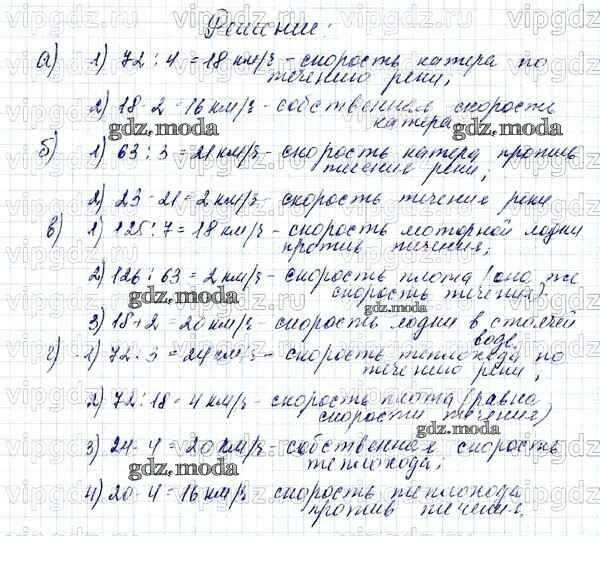 Решение:
а) 1) 72 : 4 = 18 км/ч - скорость катера по
течению реки;
2) 18 - 2 = 16 км/ч - собственная скорость
катера
gdz.moda gdz.moda
б) 1) 63 : 3 = 21 км/ч - скорость катера против
течения реки;
2) 23 - 21 = 2 км/ч - скорость течения реки
в) 1) 126 : 7 = 18 км/ч - скорость моторной лодки
против течения;
2) 126 : 63 = 2 км/ч - скорость плота (она же
скорость течения)
gdz.moda
gdz.moda
3) 18 + 2 = 20 км/ч - скорость лодки в стоячей
воде.
г) 1) 72 : 3 = 24 км/ч - скорость теплохода по
течению реки;
gdz.moda
2) 72 : 18 = 4 км/ч - скорость плота (равна
скорости течения)
gdz.moda
3) 24 - 4 = 20 км/ч - собственная скорость
теплохода;
gdz.moda
4) 20 - 4 = 16 км/ч - скорость теплохода
против течения.